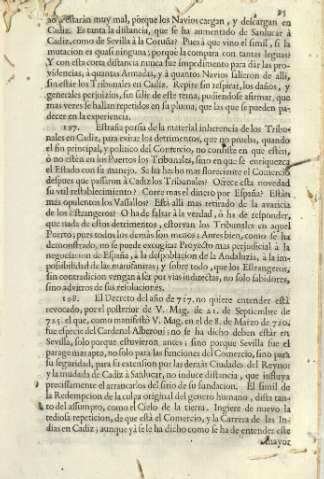 no estarían muy mal, porque los Navios cargan, y descargan en
Cadiz. Es tanta la distancia, que se ha aumentado de Sanlucar à
Cadiz, como de Sevilla à la Coruña? Pues à que vino el simil, si la
mutacion es quasi ninguna, porque la compara con tantas leguas?
Y con esta corta distancia nunca fue impedimento para dàr las pro-
videncias, à quantas Armadas, y à quantos Navios salieron de alli,
sin estàr los Tribunales en Cadiz. Repite sin respirar, los daños, y
generales perjuicios, sin salir de este tema, pudiendose afirmar, que
mas veces se hallan repetidos en su pluma, que las que se pueden pa-
decer en la experiencia.
197. Estraña porfia de la material inherencia de los Tribu-
nales en Cadiz, para evitar los detrimentos, que no prueba, quando
el fin principal, y politico del Comercio, no consiste en que estèn,
ò no estèn en los Puertos los Tribunales, sino en que se enriquezca
el Estado con su manejo. Se ha hecho mas floreciente el Comercio
despues que passaron à Cadiz los Tribunales? Ofrece esta novedad
su vtil restablecimiento? Corre mas el dinero por España? Estàn
mas opulentos los Vassallos? Està alli mas retirado de la avaricia
de los Estrangeros? O ha de faltar à la verdad, ò ha de responder,
que nada de estos detrimentos, estorvan los Tribunales en aquel
Puerto; pues todos los demàs son menos: Antes bien, como se ha
demonstrado, no se puede excogitar Proyecto mas perjudicial à la
negociacion de España, à la despoblacion de la Andalucia, à la im-
posibilidad de las manufacturas; y sobre todo, que los Estrangeros,
sin contradicion vengan à ser por vias indirectas, no solo sabidores,
sino adbitros de sus resoluciones.
198. El Decreto del año de 717. no quiere entender està
revocado, por el posterior de V. Mag. de 21. de Septiembre de
725. el que, como manifestò V. Mag. en el de 8. de Marzo de 720.
fue especie del Cardenal Alberoni: no se ha dicho deben estàr en
Sevilla, solo porque estuvieron antes; sino porque Sevilla fue el
parage mas apto, no solo para las funciones del Comercio, sino para
su seguridad, para su extension por las demàs Ciudades del Reyno:
y la mudada de Cadiz à Sanlucar, no induce distancia, que influya
precissamente el arrancarlos del sitio de su fundacion. El simil de
la Redempcion de la culpa original del genero humano, dista tan-
to del assumpto, como el Cielo de la tierra. Ingiere de nuevo la
tediosa repeticion, de que està el Comercio, y la Carrera de las In-
dias en Cadiz; aunque yà se le ha dicho como se ha de entender este
mayor